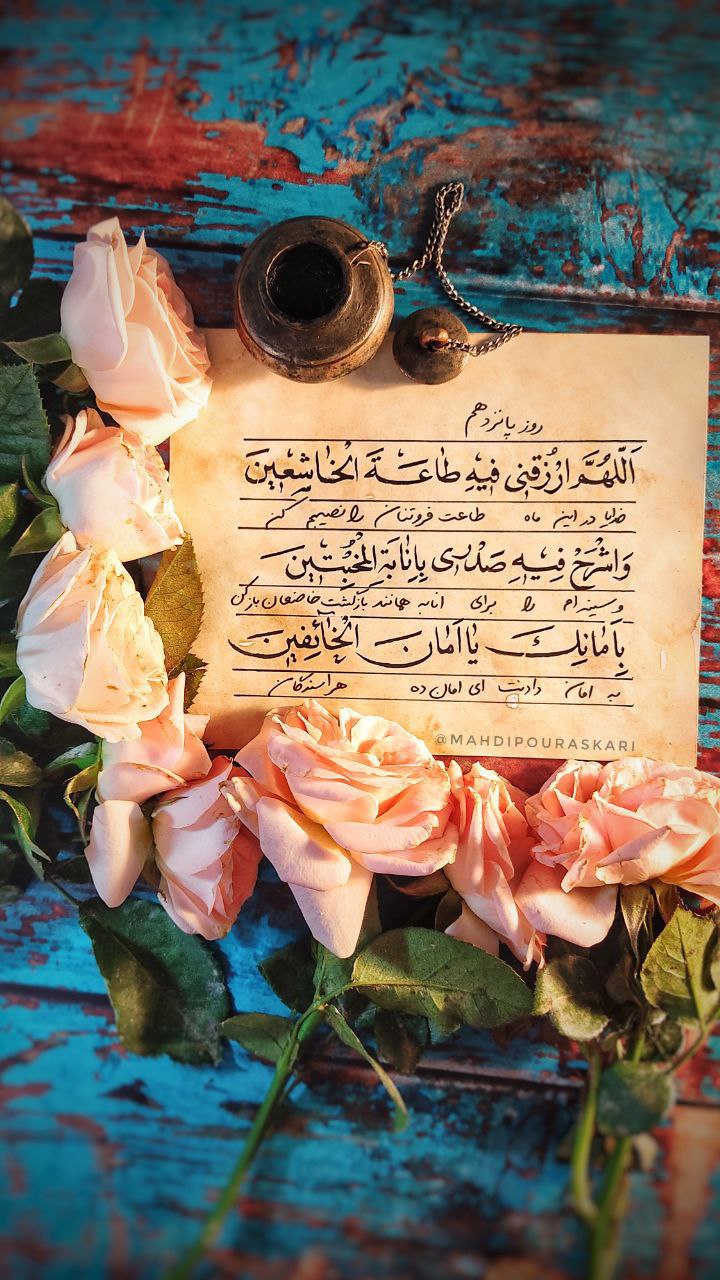 روز پانزدهم
اَللّهُمَّ ارْزُقْنی فیهِ طاعَةَ الْخاشِعینَ
خدایا در این ماه طاعت فروتنان را نصیبم کن
وَاشْرَحْ فیهِ صَدْری بِاِنابَةِ الْمُخْبِتینَ
و سینه‌ام را برای انابه همانند بازگشت خاضعان باز کن
بِاَمانِكَ یا اَمانَ الْخائِفینَ
به امان دادنت ای امان ده هراسندگان
@MAHDIPOURASKARI